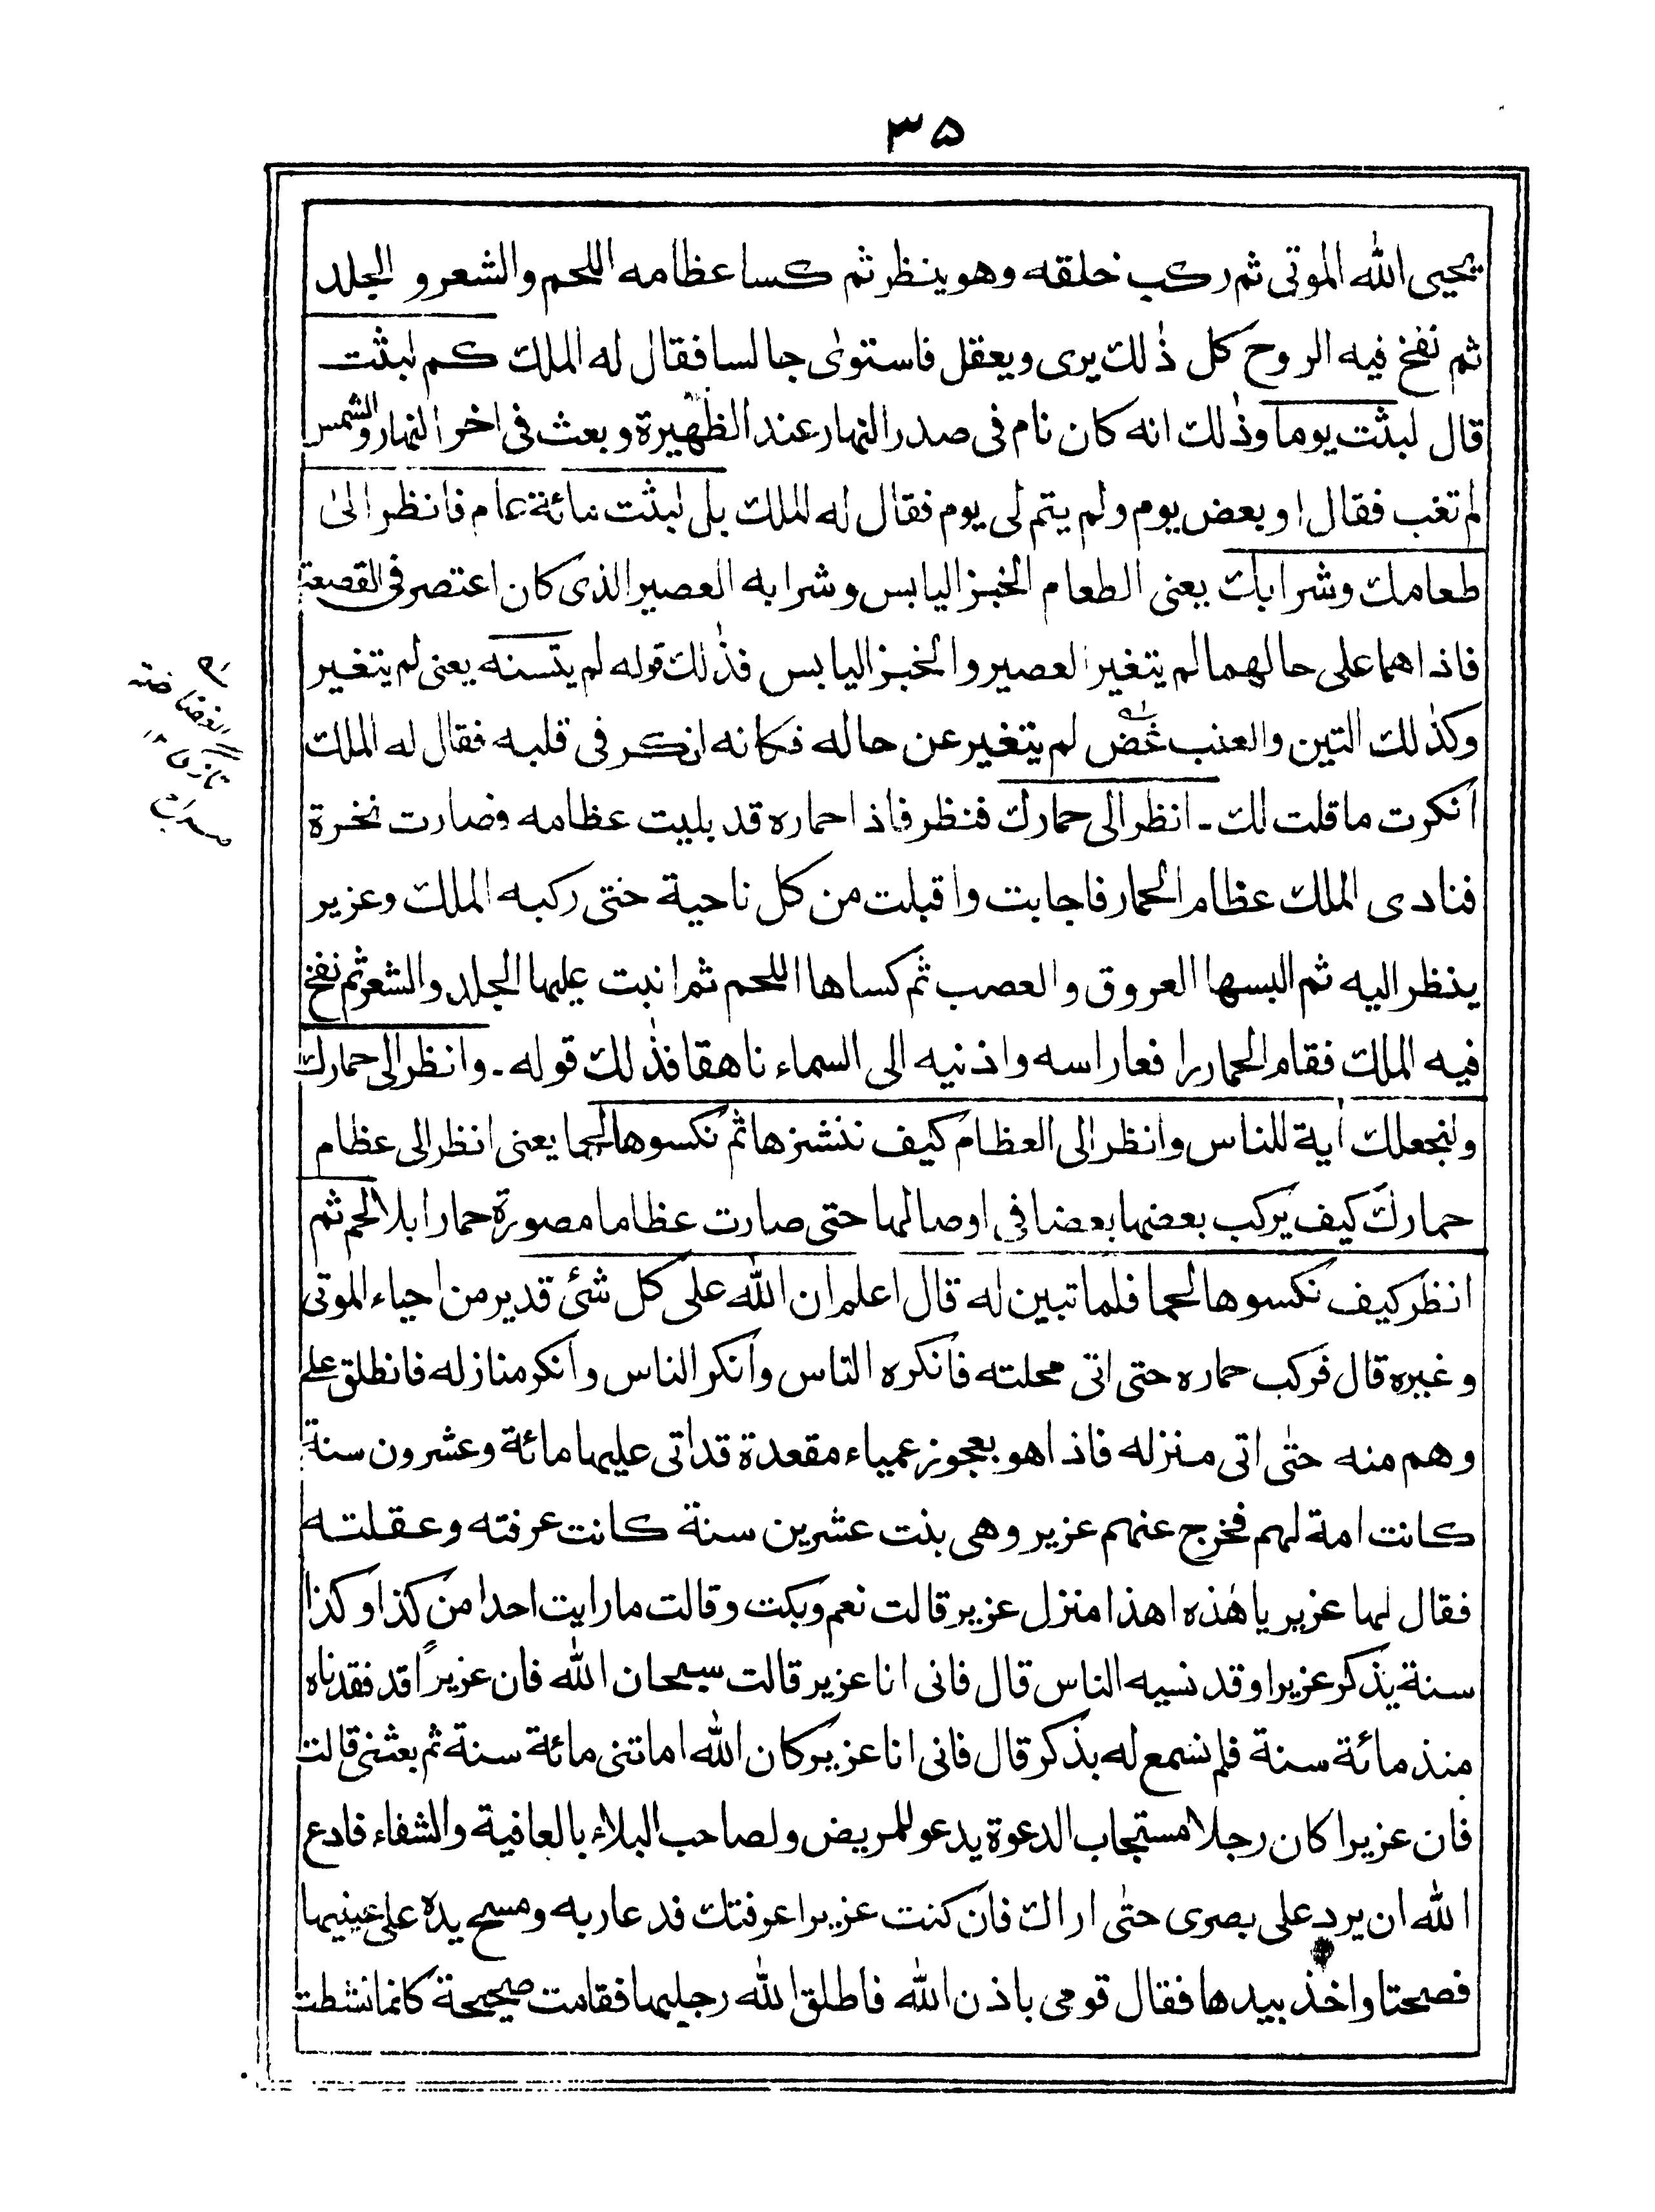 ۳۵
يحيى الله الموتى ثم ركب خلقه وهو ينظر ثم كسا عظامه اللحم والشعر و الجلد
ثم نفخ فيه الروح كل ذٰلك يرى ويعقل فاستوىٰ جالسا فقال له الملك كم لبثت
قال لبثت يوما وذٰلك انه كان نام فى صدر النهار عند الظهيرة وبعث فى اخر النهار والشمس
لم تغب فقال او بعض يوم ولم يتم لى يوم فقال له الملك بل لبثت مائة عام فانظر الىٰ
طعامك وشرابك يعنى الطعام الخبز اليابس وشرابه العصير الذى كان اعتصر فى القصعة
فاذا هما على حالهما لم يتغير العصير والخبز اليابس فذٰلك قوله لم يتسنه يعنى لم يتغير
وكذٰلك التين والعنب غض لم يتغير عن حاله فكانه انكر فى قلبه فقال له الملك
انكرت ما قلت لك ـ انظر الى حمارك فنظر فاذا حماره قد بليت عظامه وصارت نخرة
فنادى الملك عظام الحمار فاجابت واقبلت من كل ناحية حتى ركبه الملك وعزير
ينظر اليه ثم البسها العروق والعصب ثم كساها اللحم ثم انبت عليها الجلد والشعر ثم نفخ
فيه الملك فقام الحمار رافعا راسه واذنيه الى السماء ناهقا فذٰلك قوله ـ وانظر الى حمارك
ولنجعلك اية للناس وانظر الى العظام كيف ننشزها ثم نكسوها لحما يعنى انظر الى عظام
حمارك كيف يركب بعضها بعضا فى اوصالها حتى صارت عظاما مصورة حمارا بلا لحم ثم
انظر كيف نكسوها لحما فلما تبين له قال اعلم ان الله على كل شئ قدير من احياء الموتى
وغيره قال فركب حماره حتى اتى محلته فانكره الناس وانكر الناس وانكر منازله فانطلق على
وهم منه حتىٰ اتى منزله فاذا هو بعجوز عمياء مقعدة قد اتى عليها مائة وعشرون سنة
كانت امة لهم فخرج عنهم عزير وهى بنت عشرين سنة كانت عرفته وعقلته
فقال لها عزير يا هٰذه اهذا منزل عزير قالت نعم وبكت وقالت ما رايت احدا من كذا وكذا
سنة يذكر عزيرا وقد نسيه الناس قال فانى انا عزير قالت سبحان الله فان عزيراً قد فقدناه
منذ مائة سنة فلم نسمع له بذكر قال فانى انا عزير كان الله اماتنى مائة سنة ثم بعثنى قالت
فان عزيرا كان رجلا مستجاب الدعوة يدعو للمريض ولصاحب البلاء بالعافية والشفاء فادع
الله ان يرد على بصرى حتىٰ اراك فان كنت عزيرا عرفتك فدعا ربه ومسح يده على عينيها
فصحتا واخذ بيدها فقال قومى باذن الله فاطلق الله رجليها فقامت صحيحة كانما نشطت